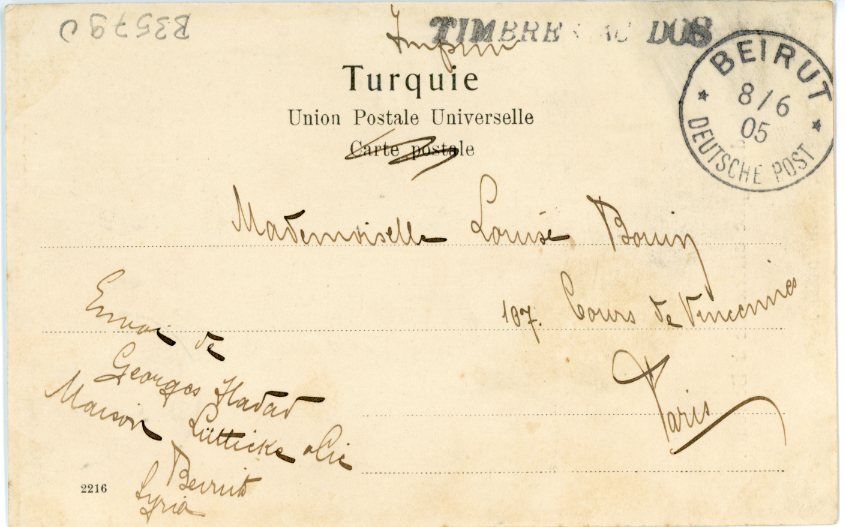 B3579
TIMBRE AU DOS
Turquie
Union Postale Universelle
Carte postale
BEIRUT
8/6
05
DEUTSCHE POST
Mademoiselle Louise Bouin
107. Cours de Vincennes
Paris
Envoi de
Georges Hadad
Maison Lütticke & Cie
Beirut
Syria
2216